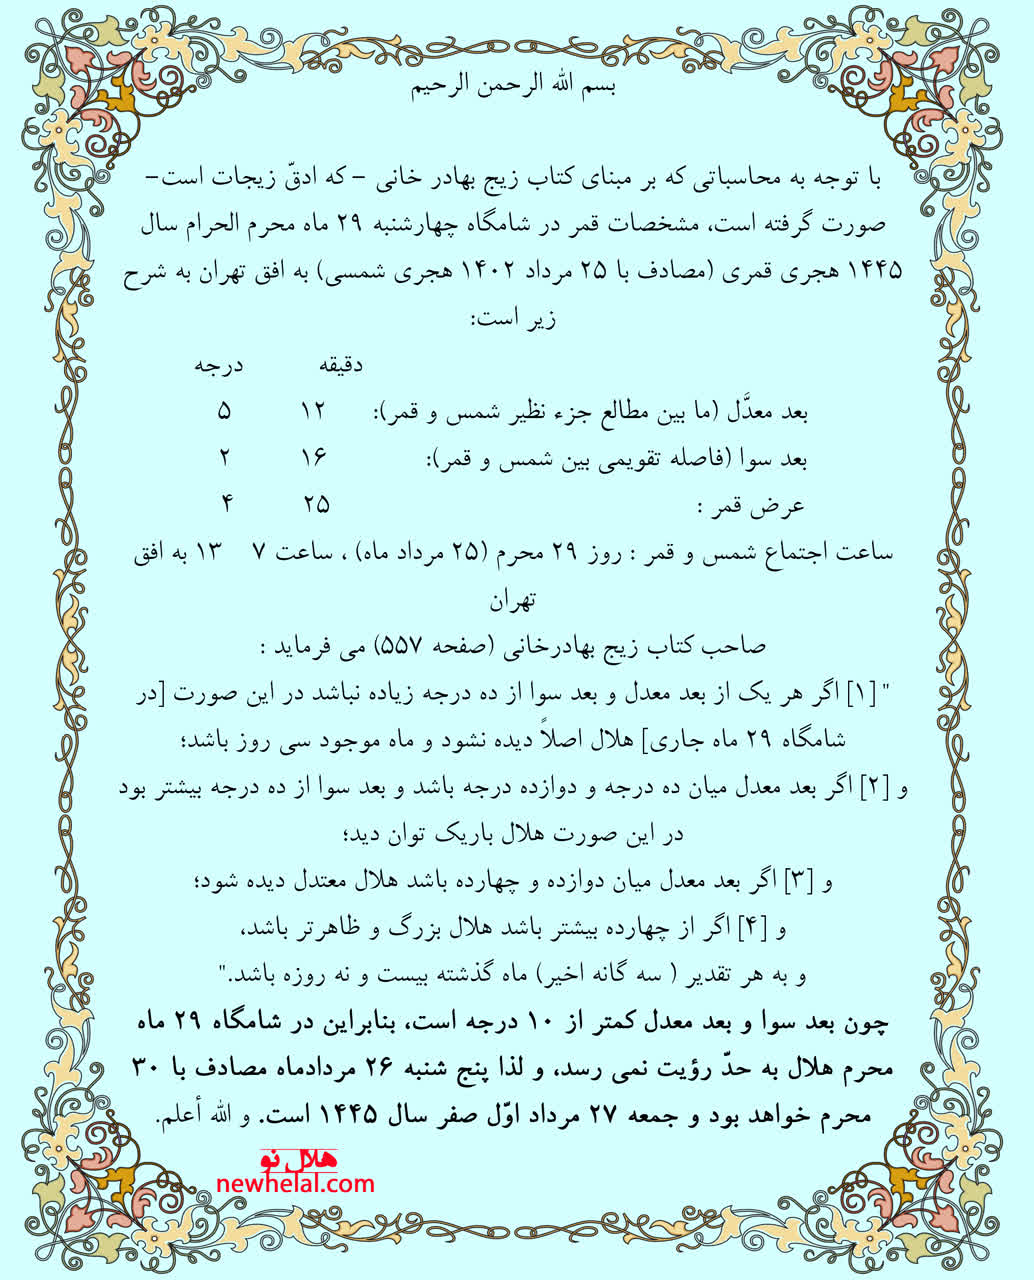 بسم الله الرحمن الرحیم
با توجه به محاسباتی که بر مبنای کتاب زیج بهادر خانی – که ادقّ زیجات است–
صورت گرفته است، مشخصات قمر در شامگاه چهارشنبه ۲۹ ماه محرم الحرام سال
۱۴۴۵ هجری قمری (مصادف با ۲۵ مرداد ۱۴۰۲ هجری شمسی) به افق تهران به شرح
زیر است:
دقیقه درجه
بعد معدَّل (ما بین مطالع جزء نظیر شمس و قمر): ۱۲ ۵
بعد سوا (فاصله تقویمی بین شمس و قمر): ۱۶ ۲
عرض قمر : ۲۵ ۴
ساعت اجتماع شمس و قمر : روز ۲۹ محرم (۲۵ مرداد ماه) ، ساعت ۷ ۱۳ به افق
تهران
صاحب کتاب زیج بهادرخانی (صفحه ۵۵۷) می فرماید :
" [۱] اگر هر یک از بعد معدل و بعد سوا از ده درجه زیاده نباشد در این صورت [در
شامگاه ۲۹ ماه جاری] هلال اصلاً دیده نشود و ماه موجود سی روز باشد؛
و [۲] اگر بعد معدل میان ده درجه و دوازده درجه باشد و بعد سوا از ده درجه بیشتر بود
در این صورت هلال باریک توان دید؛
و [۳] اگر بعد معدل میان دوازده و چهارده باشد هلال معتدل دیده شود؛
و [۴] اگر از چهارده بیشتر باشد هلال بزرگ و ظاهرتر باشد،
و به هر تقدیر ( سه گانه اخیر) ماه گذشته بیست و نه روزه باشد."
چون بعد سوا و بعد معدل کمتر از ۱۰ درجه است، بنابراین در شامگاه ۲۹ ماه
محرم هلال به حدّ رؤیت نمی رسد، و لذا پنج شنبه ۲۶ مردادماه مصادف با ۳۰
محرم خواهد بود و جمعه ۲۷ مرداد اوّل صفر سال ۱۴۴۵ است. و الله أعلم.
هلال نو
newhelal.com